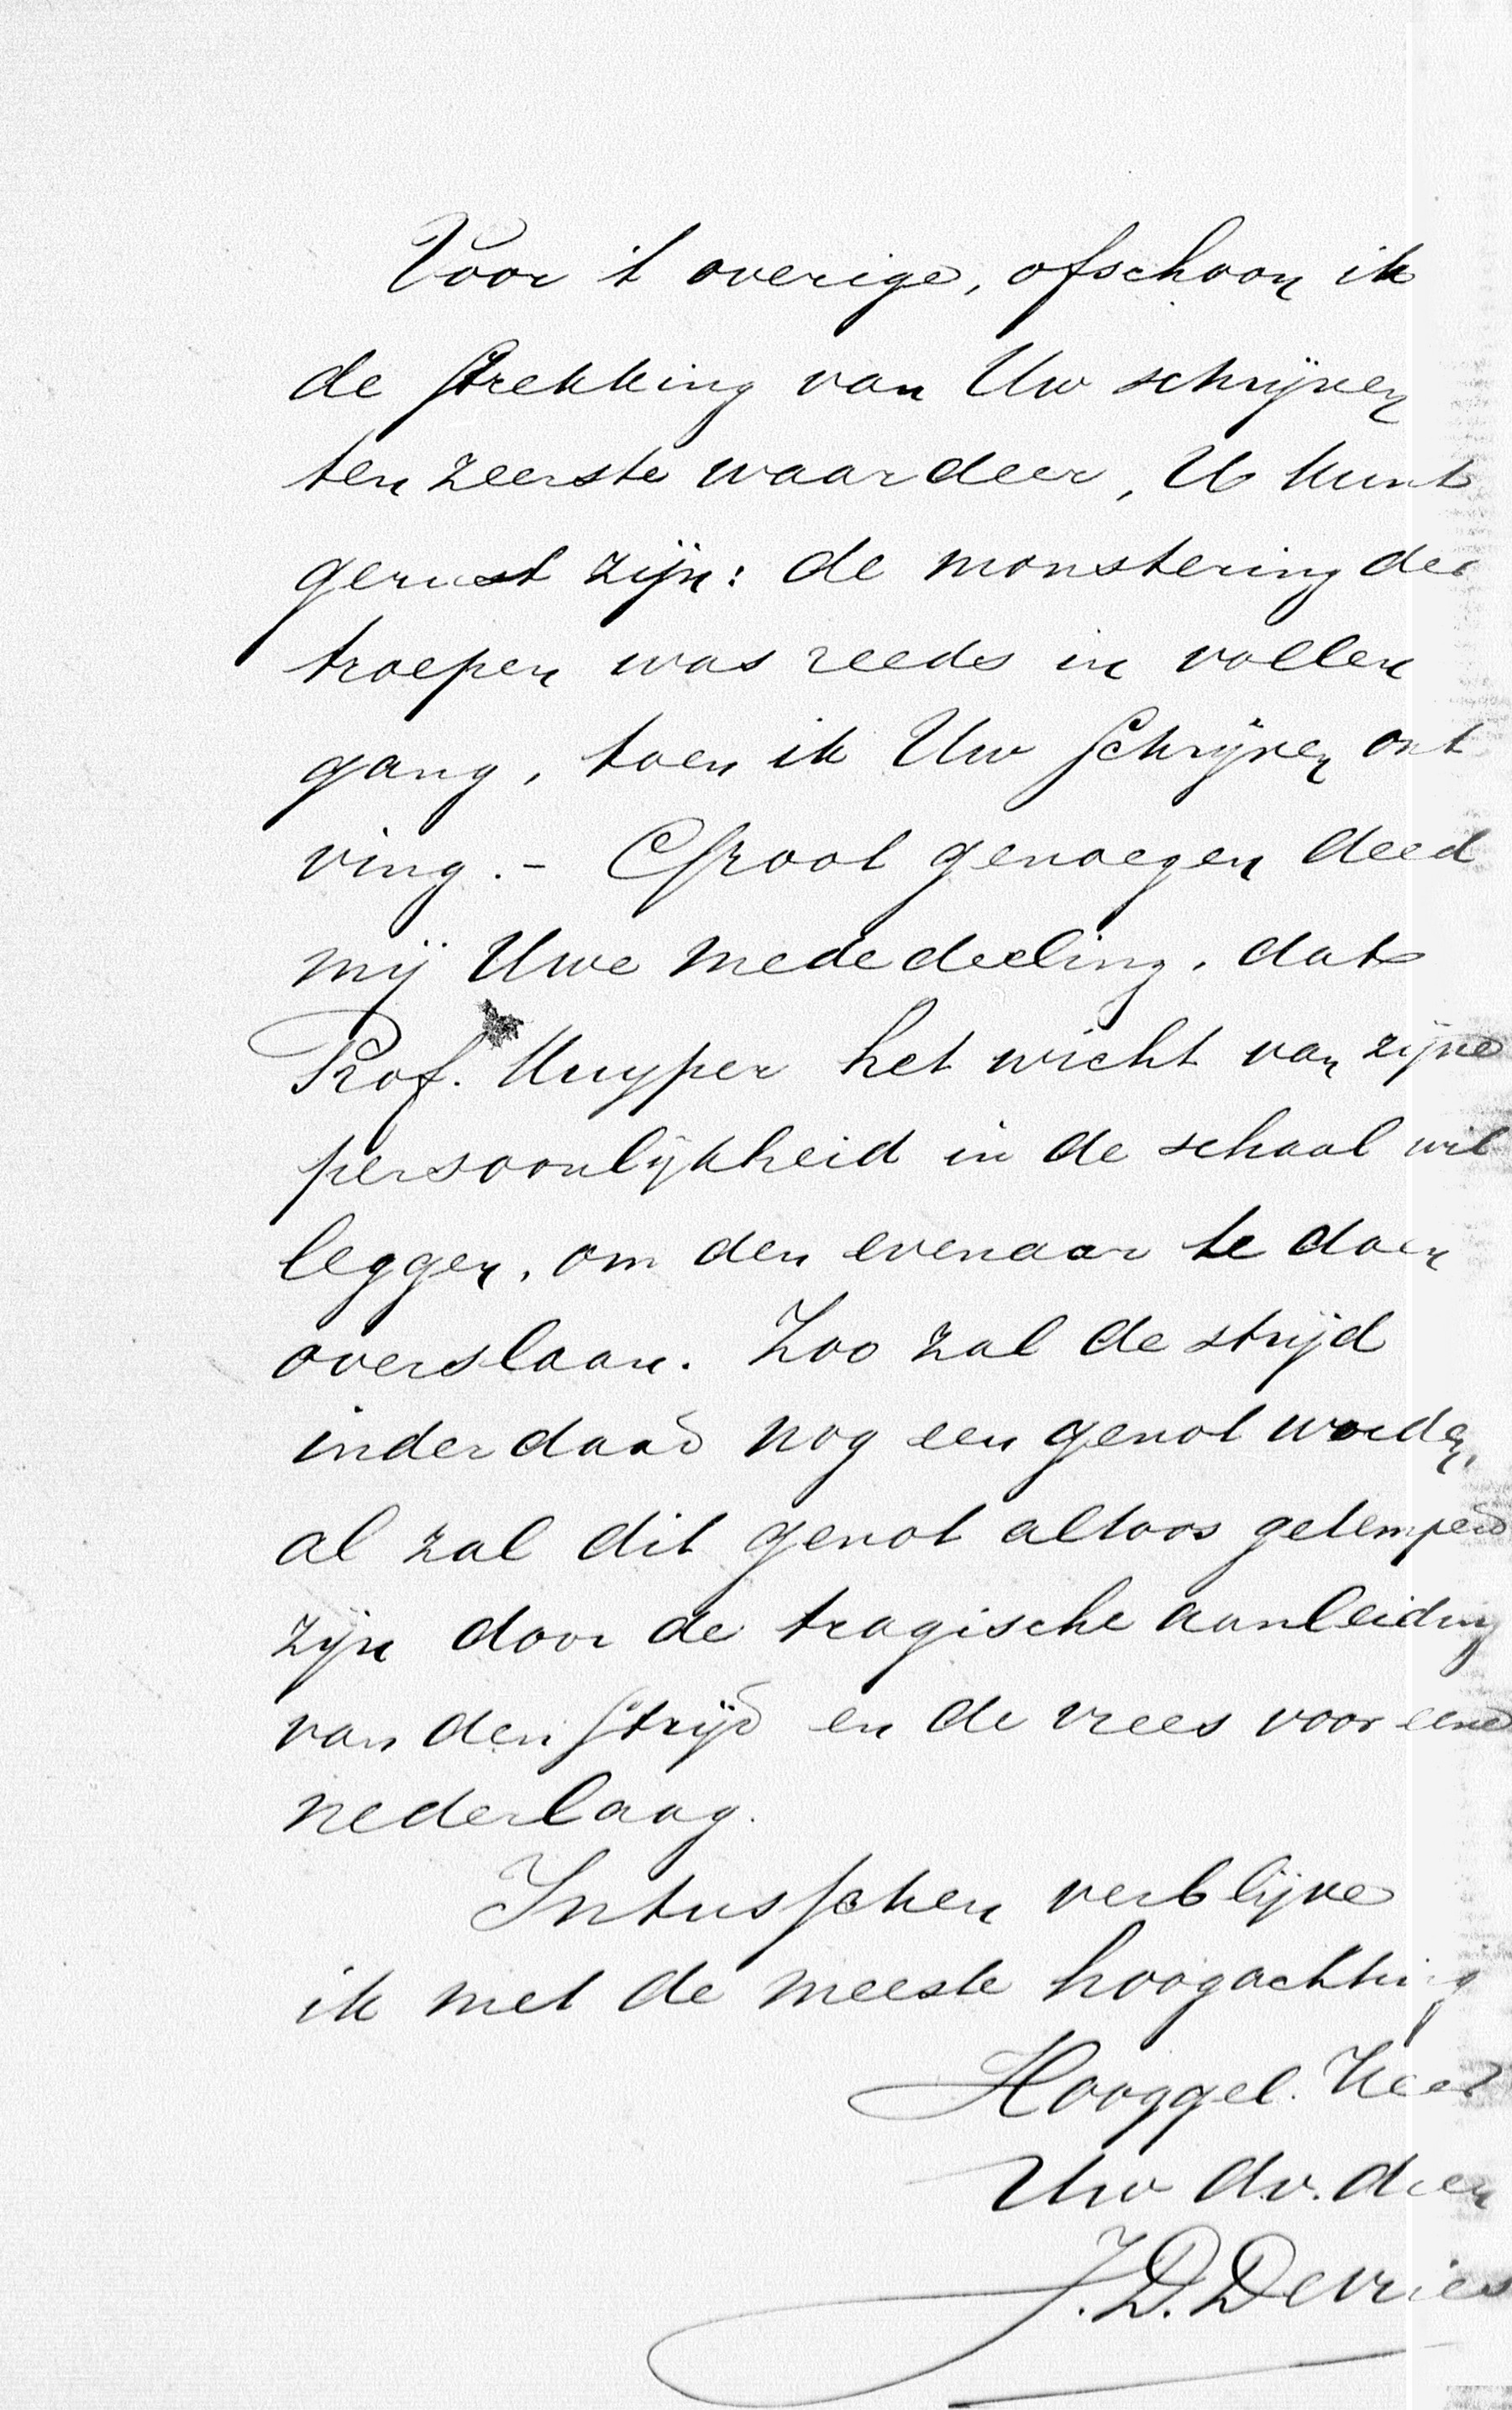 Voor 't overige, ofschoon ik
de strekking van Uw schrijven
ten zeerste waardeer, U kunt
gerust zijn: de monstering der
troepen was reeds in vollen
gang, toen ik Uw schrijven ont
ving. - Groot genoegen deed
mij Uwe mededeeling, dat
Prof. Kuyper het wicht van zijne
persoonlijkheid in de schaal wil
leggen, om den evenaar te doen
overslaan. Zoo zal de strijd
inderdaad nog een genot worden,
al zal dit genot altoos getemperd
zijn door de tragische aanleiding
van den strijd en de vrees voor eene
nederlaag.
Intusschen verblijve
ik met de meeste hoogachting
Hooggel. Heer
Uw dv. dien
J.D. De Vries